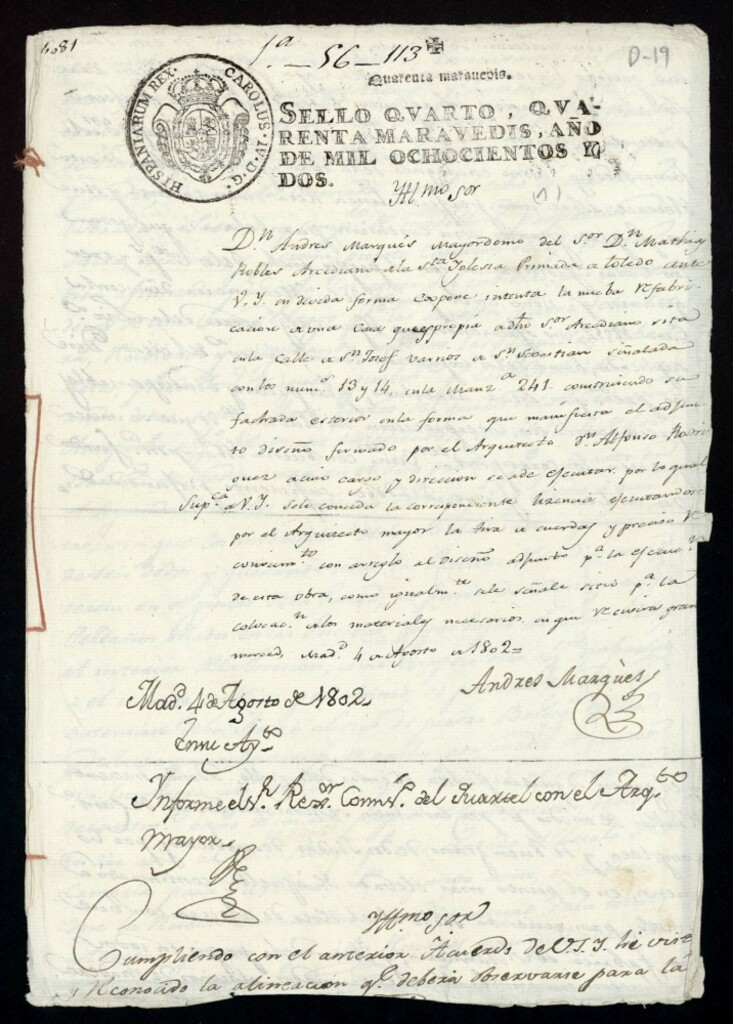 4081
1.ª - 56 - 113
D-19
Quarenta marauedis.
HISPANIARUM REX. CAROLUS. IV. D. G.
SELLO QVARTO, QVA-
RENTA MARAVEDIS, AÑO
DE MIL OCHOCIENTOS Y
DOS.
Yllmo Sor
(1)
Dn Andres Marqués Mayordomo del Sor Dn Mathias
Robles Arcediano de la Sta Iglesia Primada de Toledo ante
V. I. en devida forma expone intenta la nueba reefabri-
cacion de una Casa que es propia de dho Sor Arcediano sita
en la Calle de Sn Josef varrio de Sn Sebastian señalada
con los numos 13 y 14, en la Manza 241. construiendo su
fachada esterior en la forma que manifiesta el adjun
to diseño firmado por el Arquitecto Dn Alfonso Rodri
guez a cuio cargo y direccion se a de ejecutar. por lo qual
Supca a V. I. se le conceda la correspondiente licencia ejecutandose
por el Arquitecto mayor la tira de cuerdas y preciso re
conocimto con arreglo al diseño adjunto pa la ejecucn
de esta obra, como igualmte se le señale sitio pa la
colocacn de los materiales necesarios. en que recivira gran
merced, Madd 4 de Agosto de 1802=
Andres Marquès
Madd. 4 de Agosto de 1802.
En su Ayto
Informe el Sr. Rexor Comso. del Quartel con el Arqto
Mayor.
Yllmo Sor
Cumpliendo con el anterior Acuerdo de V.S.I. hé visto
y reconocido la alineacion qe. deberá observarse para la